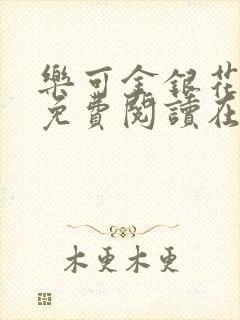 樂可金銀花
免費閱讀在
木更木更